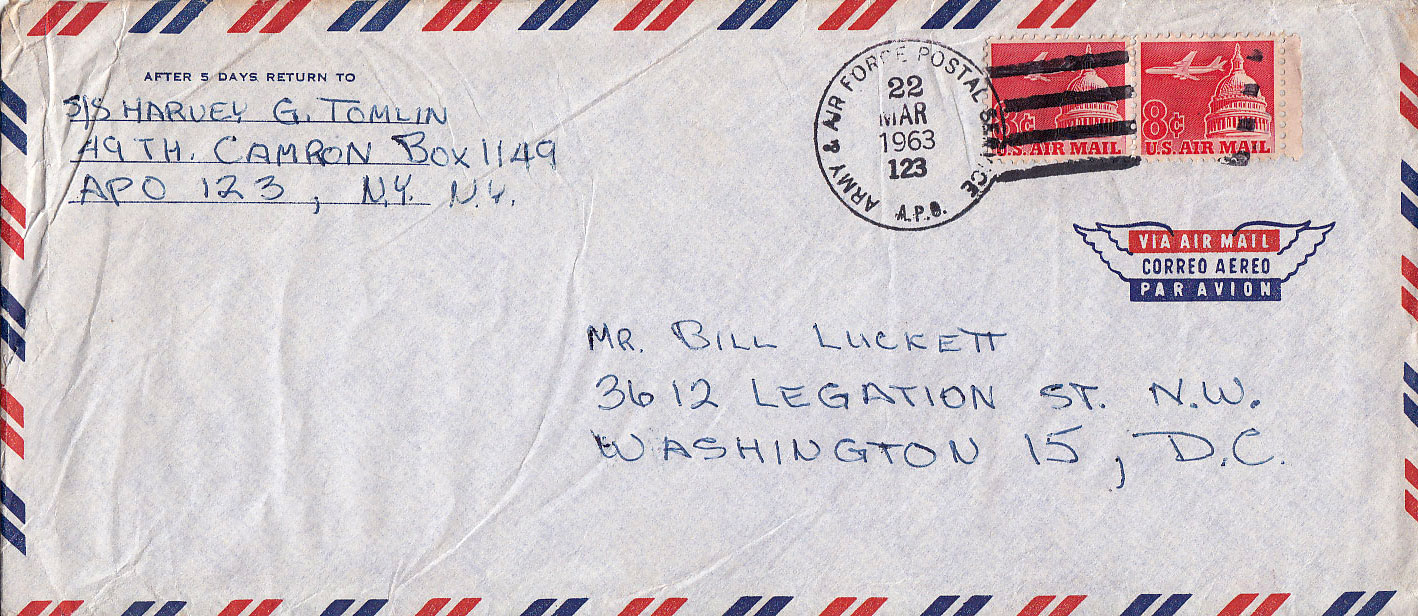 AFTER 5 DAYS RETURN TO
S/S HARVEY G. TOMLIN
49TH. CAMRON BOX 1149
APO 123, N.Y. N.Y.
ARMY & AIR FORCE POSTAL SERVICE
22
MAR
1963
123
A.P.O.
8¢
U.S. AIR MAIL
8¢
U.S. AIR MAIL
VIA AIR MAIL
CORREO AEREO
PAR AVION
MR. BILL LUCKETT
3612 LEGATION ST. N.W.
WASHINGTON 15, D.C.